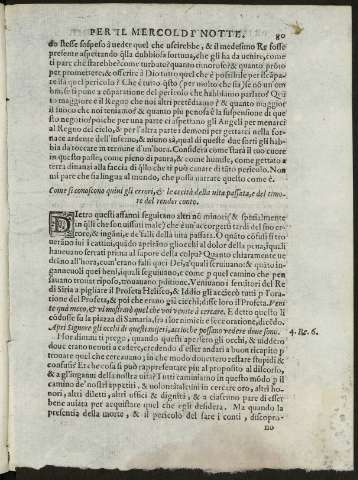 PER IL MERCOLDI' NOTTE. 80
do stesse sospeso à ueder quel che uscirebbe, & il medesimo Re fosse
presente aspettando q̃lla dubbiosa fortuna, che gli ha da uenire, come
ti par che starebbe? come turbato? quanto timoroso? & quanto prõto
per promettere, & offerire à Dio tutto quel che è possibile per iscãpa-
re da quel pericolo? Che è tutto q̃sto (per molto che sia) se nõ un om
bra, se si pone a cõparatione del pericolo che habbiamo passato? Quã
to maggiore è il Regno che noi altri pretẽdiamo? & quanto maggior
il fuoco che noi temiamo? & quanto piu penosa è la suspensione di que
sto negotio? poiche per una parte ci aspettano gli Angeli per menarci
al Regno del cielo, & per l'altra parte i demoni per gettarci nella for-
nace ardente dell'inferno, & niuno sà, qual di queste due sorti gli hab-
bia da toccare in termine d'un'hora. Considera come starà il tuo cuore
in questo passo, come pieno di paura, & come humile, come gettato a
terra dinanzi alla faccia di q̃llo che ti può cauare di tãto pericolo. Non
mi pare che sia lingua al mondo, che possa narrare questo come è.
Come si conoscono quini gli errori, & le cecità della uita passata, e del timo-
re del render conto.
Dietro questi affanni seguitano altri nõ minori (& spetialmente
in q̃lli che son uissuti male) che è un'accorgersi tardi del suo er-
rore, & ingãni, e de' falli della uita passata. O quãto cõfusi si tro
ueranno iui i cattiui, quãdo aprirãno gli occhi al dolor della pena, i quali
haueuano serrati prima al sapore della colpa? Quanto chiaramente ue
drãno all'hora, com'erano falsi quei Dei, a' quali seruiuano? & quãto in-
ganeuoli quei beni, i quali seguiuano, e come p quel camino che pen
sauano trouar riposo, trouauano pditione. Veniuano i seruitori del Re
di Siria a pigliare il Profeta Heliseo, & Iddio gli accecò tutti p l'ora-
tione del Profeta, & poi che erano già ciechi, disse loro il Profeta. Veni
te quà meco, & vi mostrarò quel che voi venite à cercare. E detto questo li
cõdusse su la piazza di Samaria, fra i lor nimici e feceoratione, dicẽdo.
Apri Signore gli occhi di questi miseri, accioche possano vedere doue sono. 4. Re. 6.
Hor dinmi ti prego, quando questi apersero gli occhi, & uiddero
doue erano uenuti a cadere, credendo d'esser andati a buon ricapito p
trouare quel che cercauano; in che modo douettero restare stupidi, &
confusi? Et che cosa si può rappresentare piu al proposito al discorso,
& a gl'inganni della nostra uita? Tutti caminiamo in questo mõdo p il
camino de' nostri appetiti, & uolontà: altri in cercare oro, altri ho-
nori, altri diletti, altri offici & dignità, & a ciascuno pare di esser
bene auiata per acquistare quel che egli desidera. Ma quando la
presentia della morte, & il pericolo del fare i conti, discopro-
no